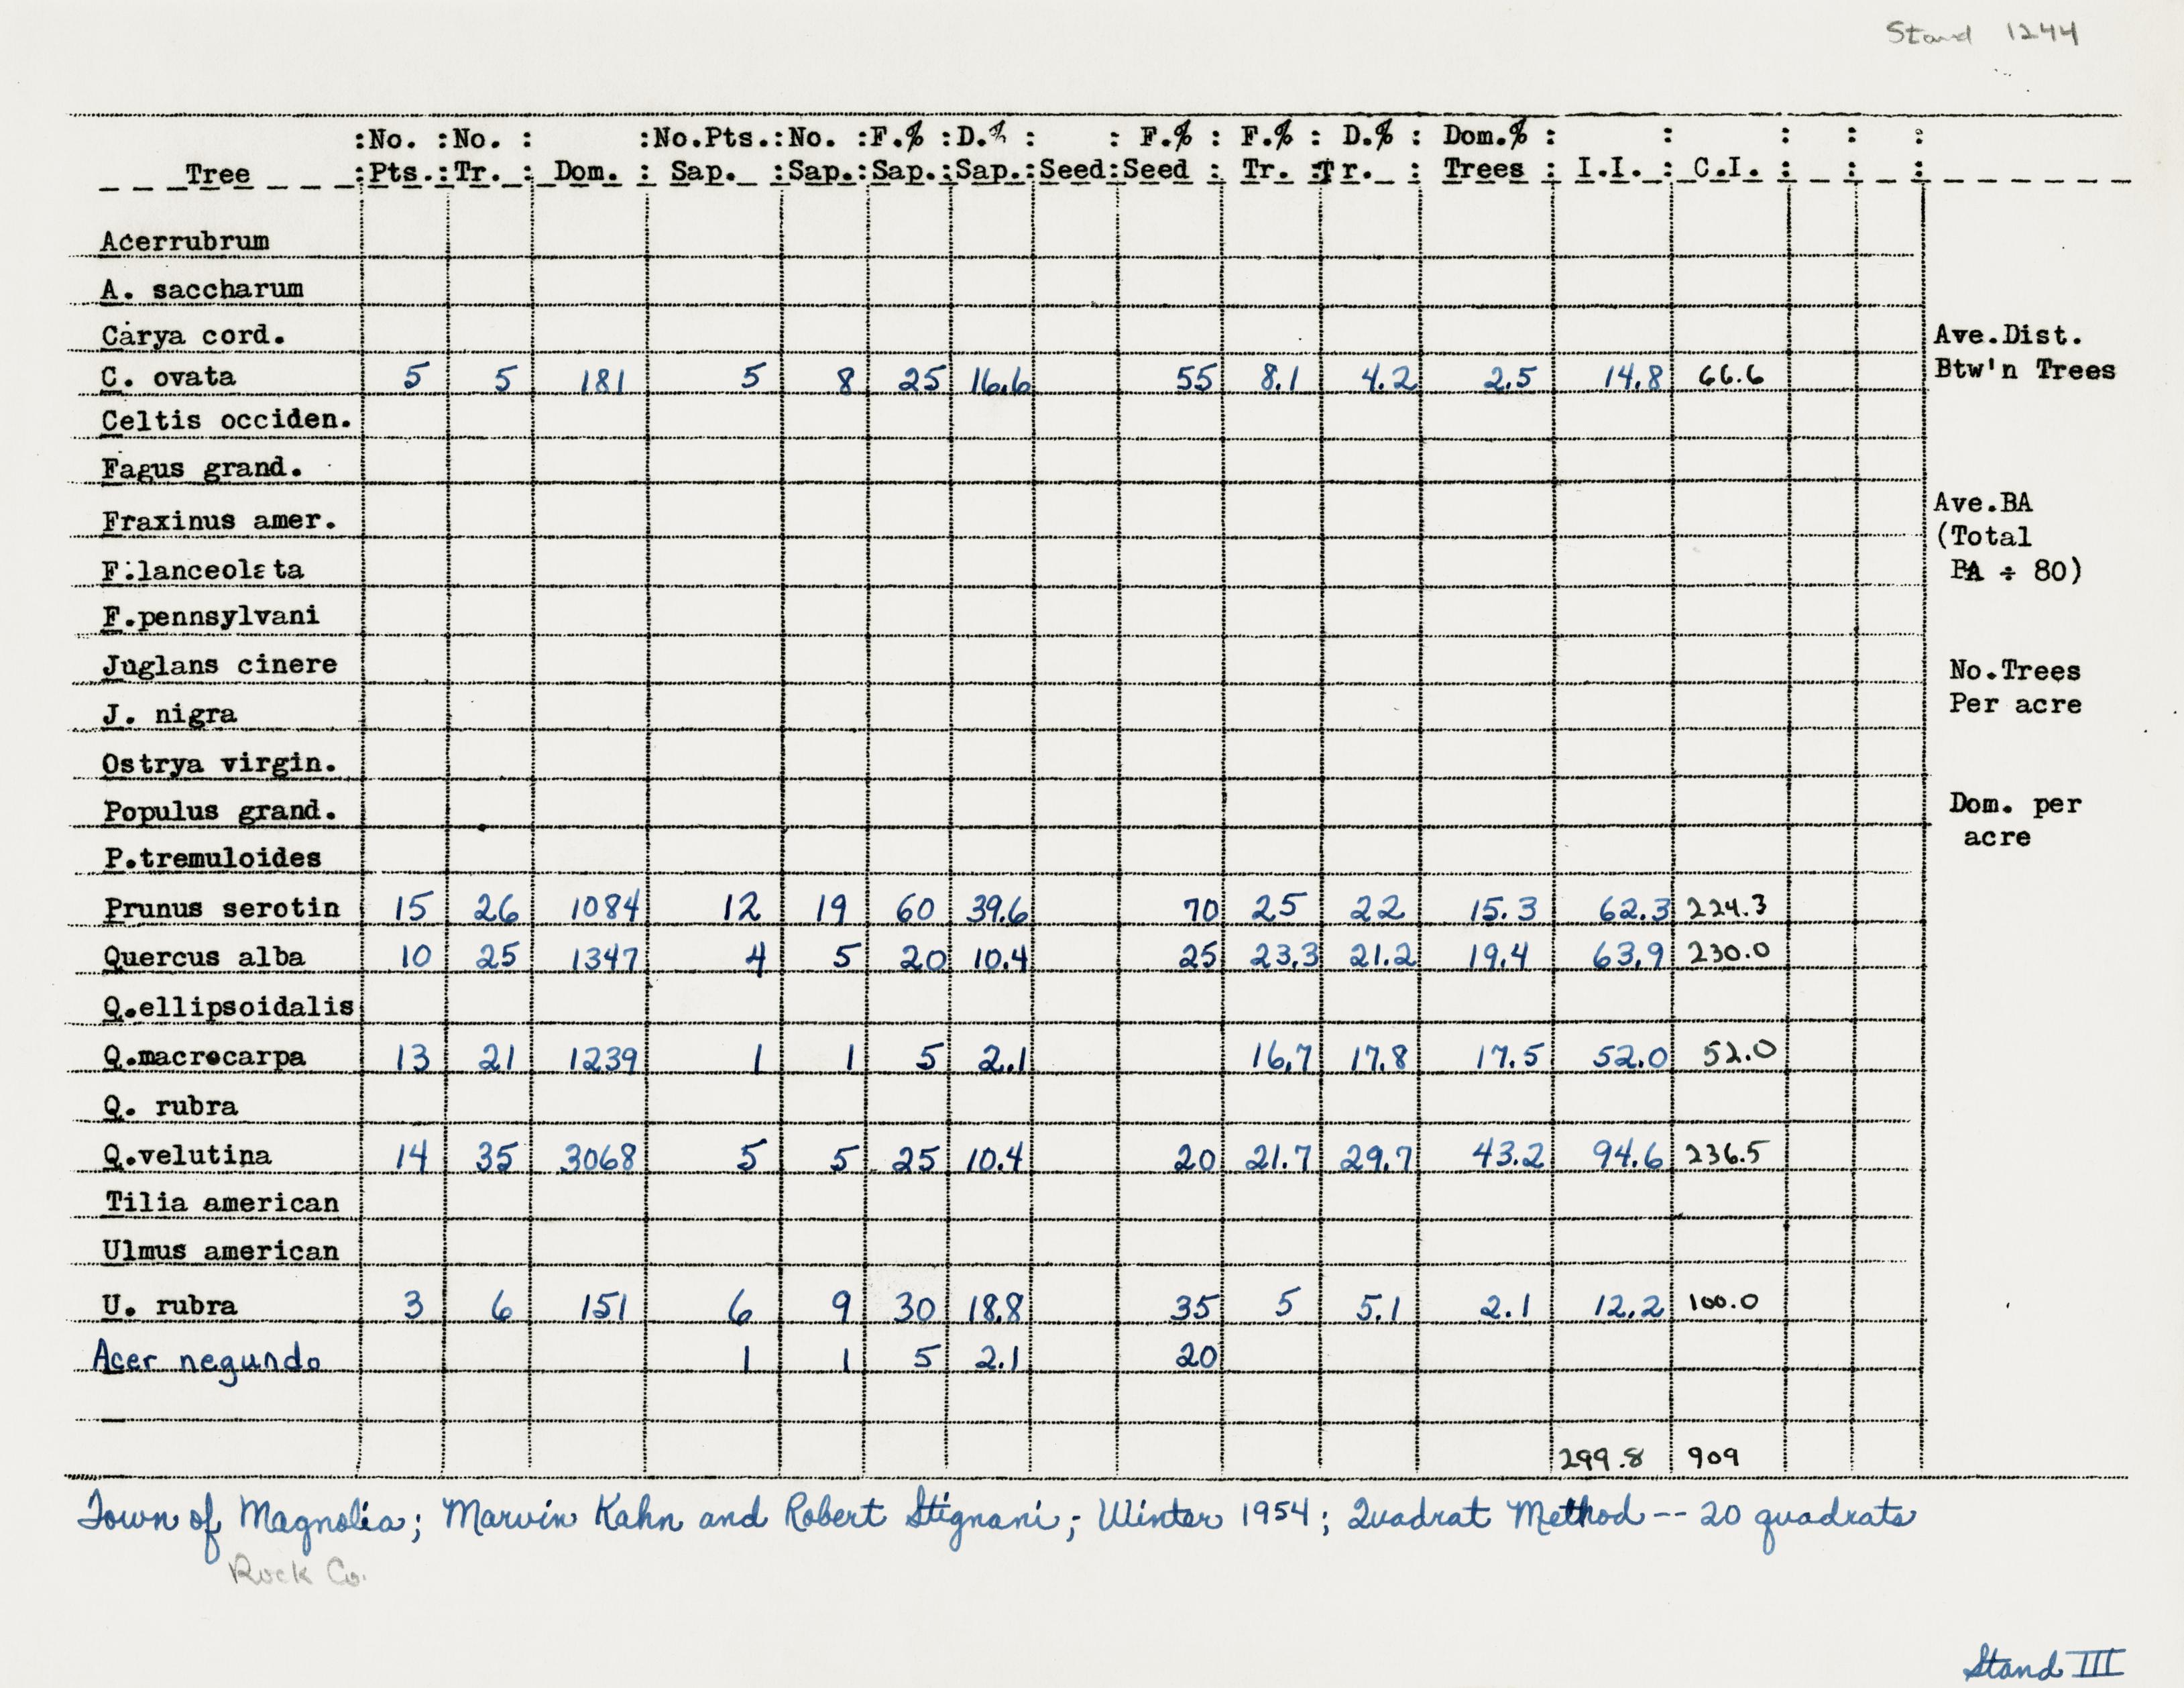 Stand 1244
:No. :No. : :No.Pts.:No. :F.% :D.% : : F.% : F.% : D.% : Dom.% : : : : :
Tree :Pts.:Tr. : Dom. : Sap. :Sap.:Sap.:Sap.:Seed:Seed : Tr. :Tr. : Trees : I.I. : C.I. : : :
Acerrubrum
A. saccharum
Carya cord.
Ave.Dist.
Btw'n Trees
C. ovata 5 5 181 5 8 25 16.6 55 8.1 4.2 2.5 14.8 66.6
Celtis occiden.
Fagus grand.
Ave.BA
Fraxinus amer.
(Total
F.lanceolata
BA ÷ 80)
F.pennsylvani
Juglans cinere
No.Trees
J. nigra
Per acre
Ostrya virgin.
Populus grand.
Dom. per
acre
P.tremuloides
Prunus serotin 15 26 1084 12 19 60 39.6 70 25 22 15.3 62.3 224.3
Quercus alba 10 25 1347 4 5 20 10.4 25 23.3 21.2 19.4 63.9 230.0
Q.ellipsoidalis
Q.macrocarpa 13 21 1239 1 1 5 2.1 16.7 17.8 17.5 52.0 52.0
Q. rubra
Q.velutina 14 35 3068 5 5 25 10.4 20 21.7 29.7 43.2 94.6 236.5
Tilia american
Ulmus american
U. rubra 3 6 151 6 9 30 18.8 35 5 5.1 2.1 12.2 100.0
Acer negundo 1 1 5 2.1 20
299.8 909
Town of Magnolia; Marvin Kahn and Robert Stignani; Winter 1954; Quadrat Method -- 20 quadrats
Rock Co.
Stand III